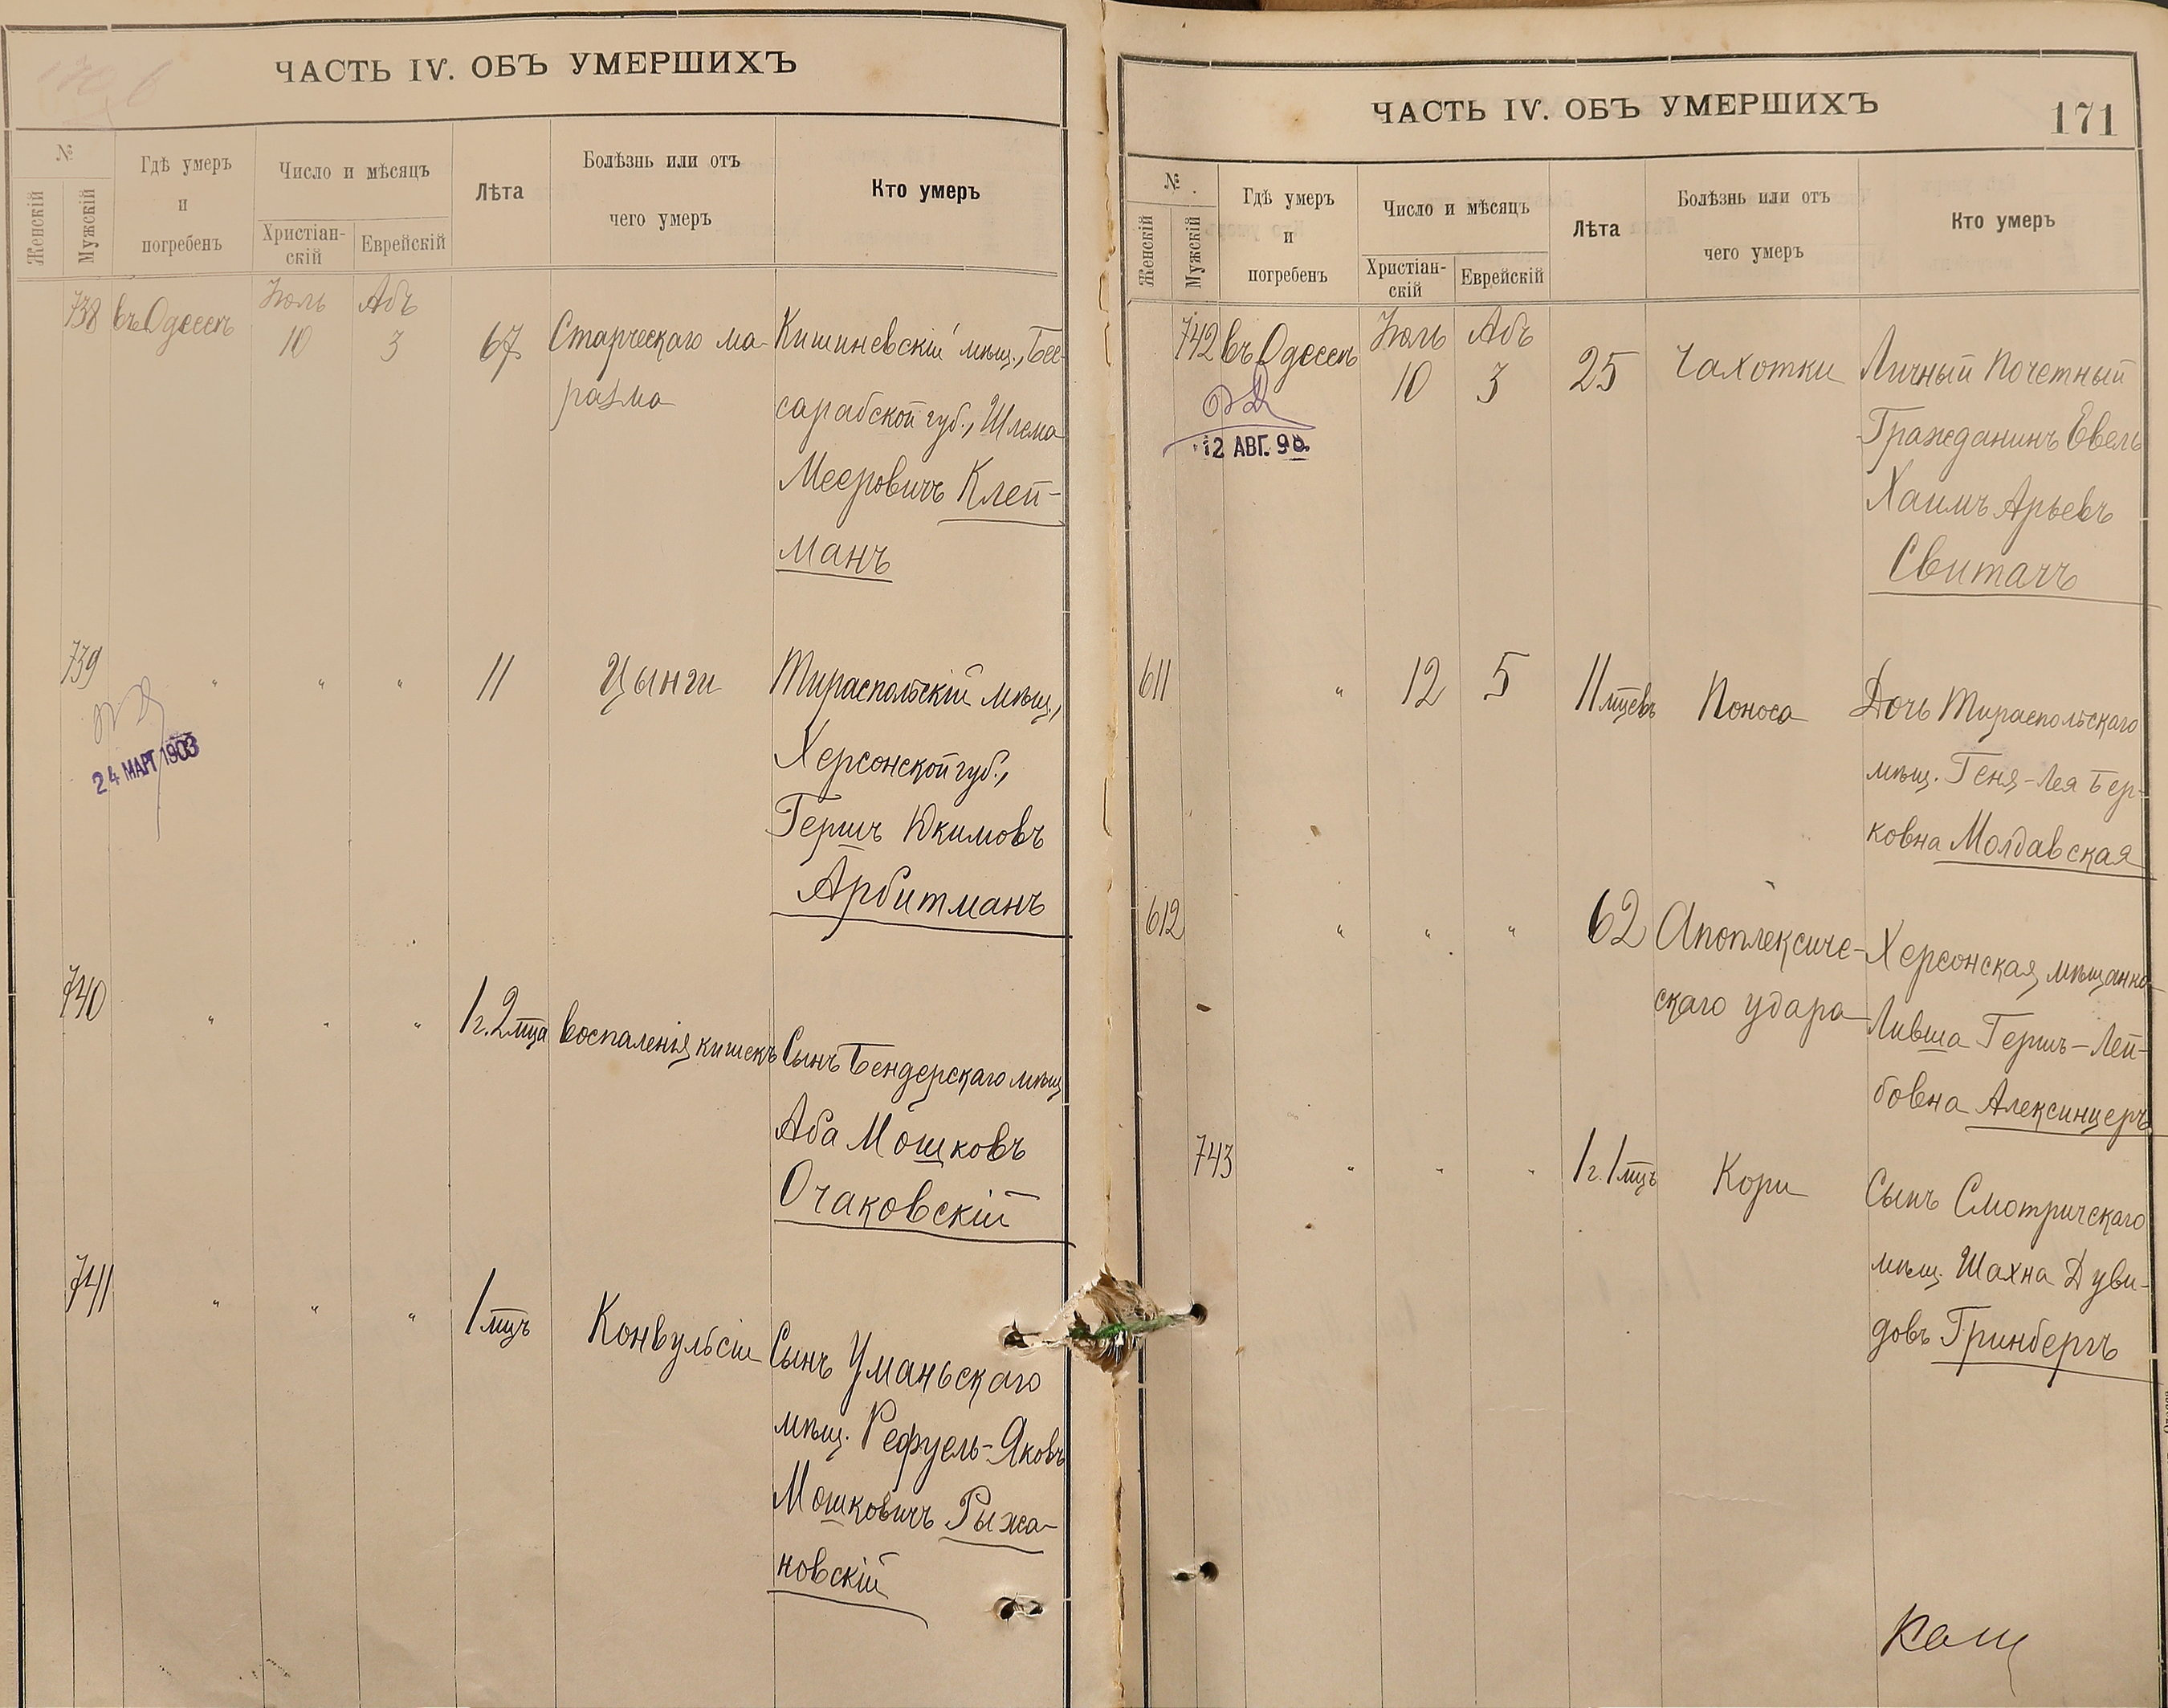 ЧАСТЬ IV. ОБЪ УМЕРШИХЪ
№
Женскій
Мужскій
Гдѣ умеръ
и
погребенъ
Число и мѣсяцъ
Христіан-
скій
Еврейскій
Лѣта
Болѣзнь или отъ
чего умеръ
Кто умеръ
738 въ Одессѣ Іюль 10 Абъ 3 67 Старческаго ма- Кишиневскій мѣщ., Бес-
разма сарабской губ., Шлема
Мееровичъ Клей-
манъ
739 " " " 11 Цынги Тираспольскій мѣщ.,
Херсонской губ.,
Гершъ Юкимовъ
Арбитманъ
24 МАРТ 1903
740 " " " 1 г. 2 мца Воспаленія кишекъ Сынъ Бендерскаго мѣщ
Аба Мошковъ
Очаковскій
741 " " " 1 мцъ Конвульсіи Сынъ Уманьскаго
мѣщ. Рефуель-Яковъ
Мошковичъ Рыжа-
новскій
ЧАСТЬ IV. ОБЪ УМЕРШИХЪ
171
№
Женскій
Мужскій
Гдѣ умеръ
и
погребенъ
Число и мѣсяцъ
Христіан-
скій
Еврейскій
Лѣта
Болѣзнь или отъ
чего умеръ
Кто умеръ
742 въ Одессѣ Іюль 10 Абъ 3 25 Чахотки Личный Почетный
Гражданинъ Евель
Хаимъ Арьевъ
Свитачъ
12 АВГ. 98.
611 " 12 5 11 мцевъ Поноса Дочь Тираспольскаго
мѣщ. Геня-Лея Бер-
ковна Молдавская
612 " " " 62 Апоплексиче- Херсонская мѣщанка
скаго удара Ливша Гершъ-Лей-
бовна Алексинцеръ
743 " " " 1 г. 1 мцъ Кори Сынъ Смотричскаго
мѣщ. Шахна Дуви-
довъ Гринбергъ